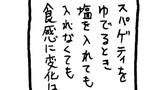 スパゲティを
ゆでるとき
塩を入れても
入れなくても
食感に変化は